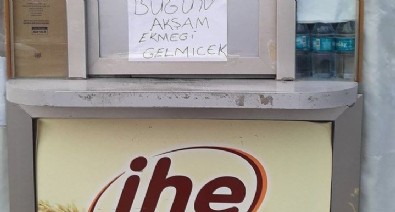 BUGÜN
AKŞAM
EKMEĞİ
GELMİCEK
ihe